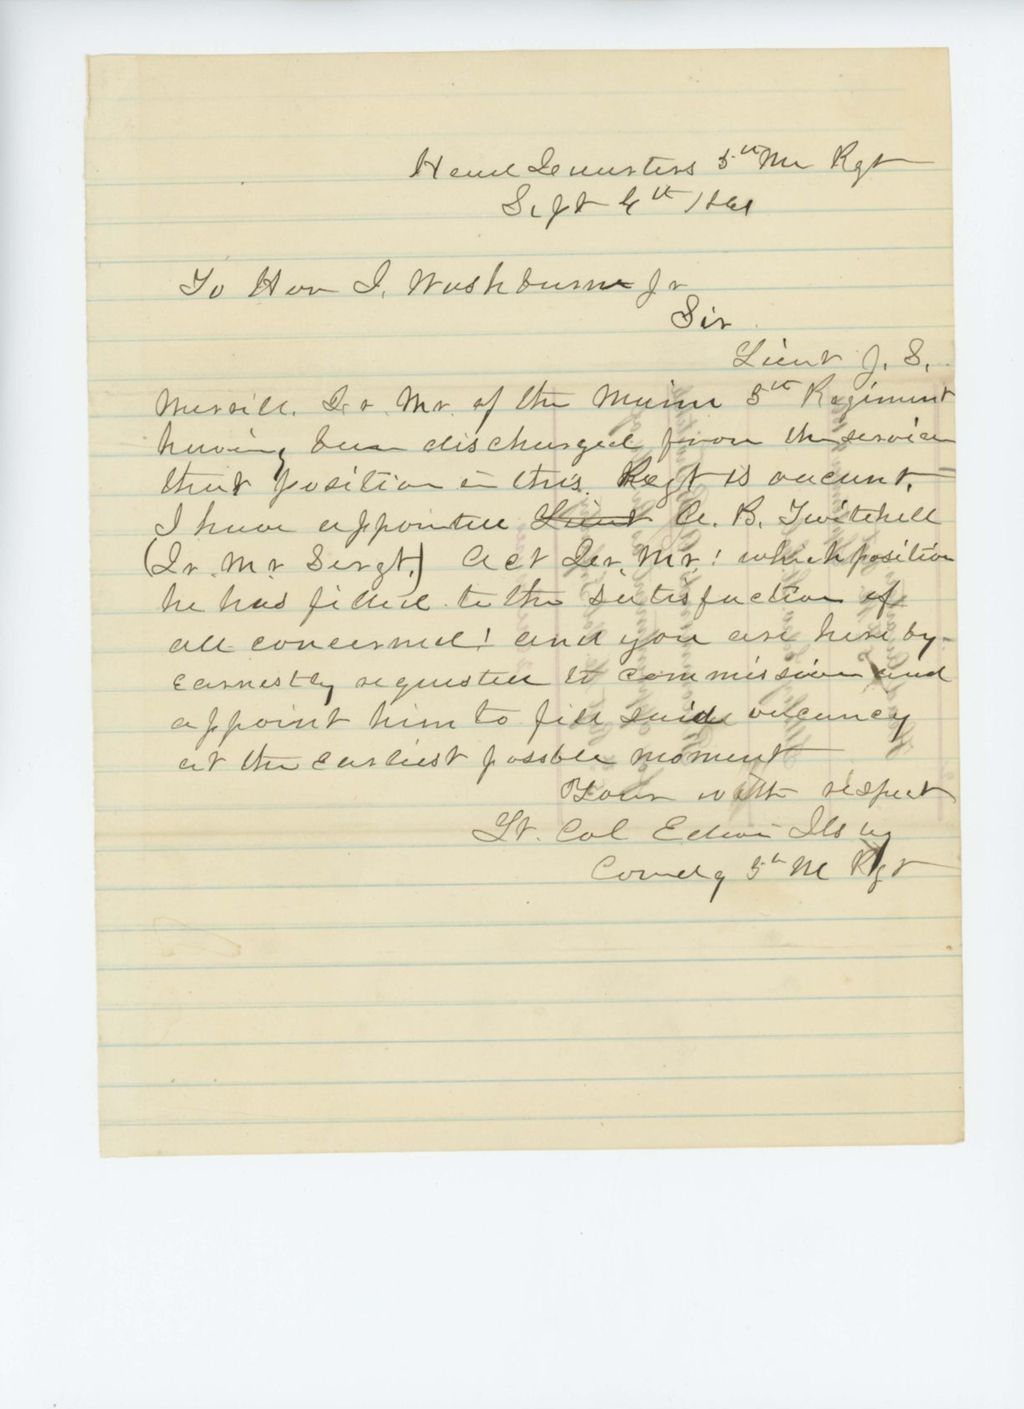 Head Quarters 5th Me Rgt
Sept 4th 1861
To Hon I. Washburne Jr
Sir
Lieut J. S.
Merrill. Qr. Mr. of the Maine 5th Regiment
having been discharged from the service
that position in this. Regt is vacant.
I have appointed Lieut A. B. Twitchell
(Qr. Mr Sergt.) Act Qr. Mr.! which position
he has filled to the satisfaction of
all concerned! and you are hereby
earnestly requested to commission and
appoint him to fill said vacancy
at the earliest possble moment
Your with respect
Lt. Col Edwin Ilsley
Comdg 5th Me Rgt